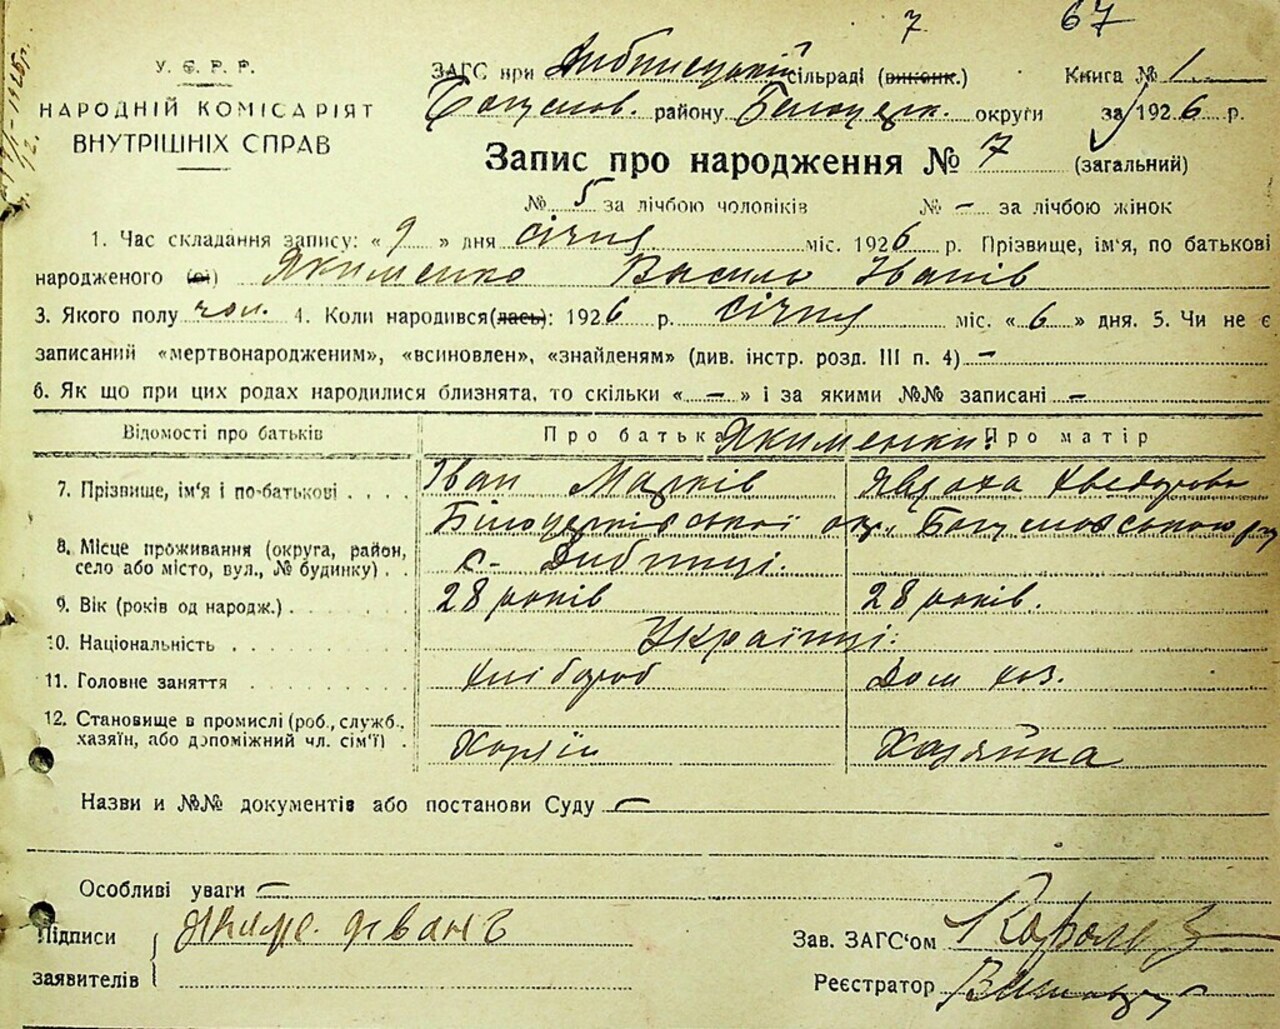 7 67
У. С. Р. Р.
НАРОДНІЙ КОМІСАРІЯТ
ВНУТРІШНІХ СПРАВ
ЗАГС при Дибинецькій сільраді (виконк.) Книга № 1
Богуслов. району Білоцерк. округи за 1926 р.
Запис про народження № 7 (загальний)
№ 5 за лічбою чоловіків № – за лічбою жінок
1. Час складання запису: « 9 » дня січня міс. 1926 р. Прізвище, ім'я, по батькові
народженого (ої) Якименко Василь Іванів
3. Якого полу чол. 4. Коли народився(лась): 1926 р. січня міс. « 6 » дня. 5. Чи не є
записаний «мертвонародженим», «всиновлен», «знайденям» (див. інстр. розд. III п. 4) –
6. Як що при цих родах народилися близнята, то скільки « – » і за якими №№ записані –
Відомості про батьків Про батька Якименки: Про матір
7. Прізвище, ім'я і по-батькові Іван Марків Явдоха Хведорова
Білоцерківської окр., Богуславського
8. Місце проживання (округа, район,
село або місто, вул., № будинку) с. Дибинці.
9. Вік (років од народж.) 28 років 28 років.
10. Національність Українці:
11. Головне заняття Хлібороб Дом хоз.
12. Становище в промислі (роб., служб.,
хазяїн, або допоміжний чл. сім'ї) Хазяїн Хазяйка
Назви и №№ документів або постанови Суду –
Особливі уваги –
Підписи Іванъ
заявителів
Зав. ЗАГС'ом Король
Реєстратор